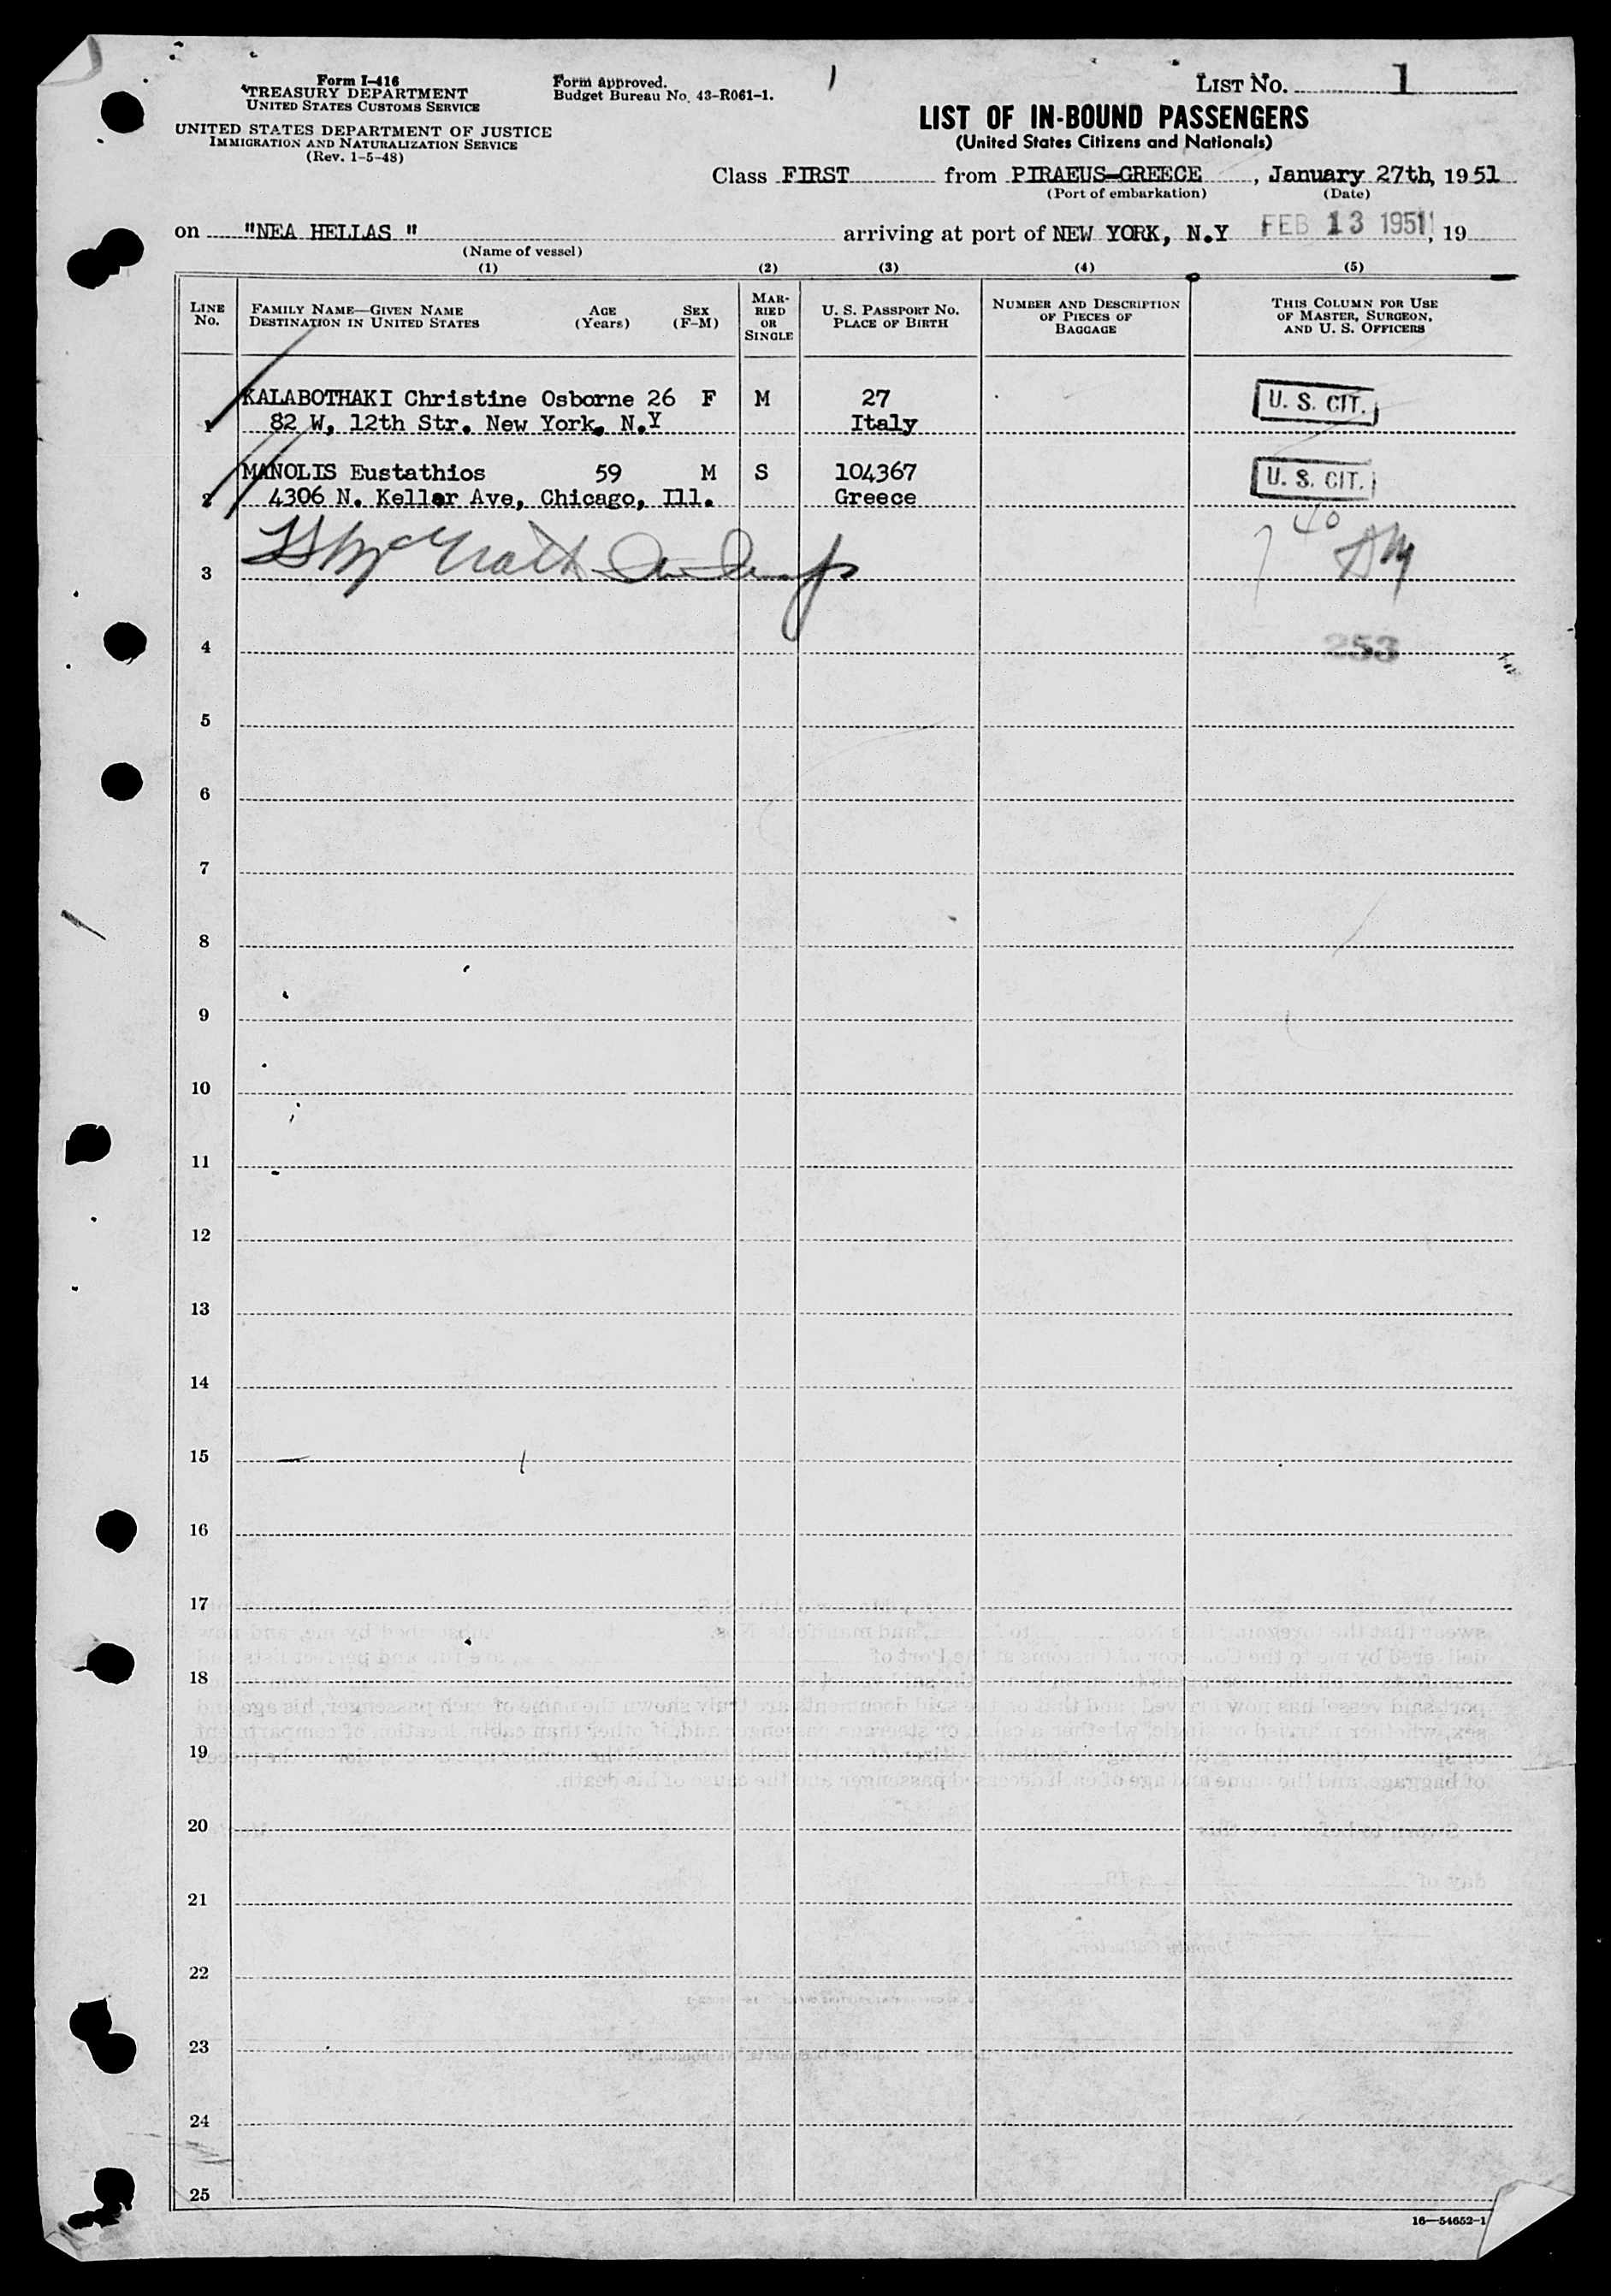 Form I-416
TREASURY DEPARTMENT
UNITED STATES CUSTOMS SERVICE
UNITED STATES DEPARTMENT OF JUSTICE
IMMIGRATION AND NATURALIZATION SERVICE
(Rev. 1-5-48)
Form approved.
Budget Bureau No. 43-R061-1.
LIST NO. 1
LIST OF IN-BOUND PASSENGERS
(United States Citizens and Nationals)
Class FIRST from PIRAEUS-GREECE, January 27th, 1951
(Port of embarkation) (Date)
on "NEA HELLAS " arriving at port of NEW YORK, N.Y FEB 13 1951, 19
(Name of vessel)
(1) (2) (3) (4) (5)
LINE No. FAMILY NAME—GIVEN NAME DESTINATION IN UNITED STATES AGE (Years) SEX (F-M) MARRIED OR SINGLE U. S. PASSPORT NO. PLACE OF BIRTH NUMBER AND DESCRIPTION OF PIECES OF BAGGAGE THIS COLUMN FOR USE OF MASTER, SURGEON, AND U. S. OFFICERS
KALABOTHAKI Christine Osborne 26 F M 27 U. S. CIT.
1 82 W, 12th Str. New York, N.Y Italy
MANOLIS Eustathios 59 M S 104367 U. S. CIT.
2 4306 N. Keller Ave, Chicago, Ill. Greece
40
3
4 253
5
6
7
8
9
10
11
12
13
14
15
16
17
18
19
20
21
22
23
24
25
16—54652-1